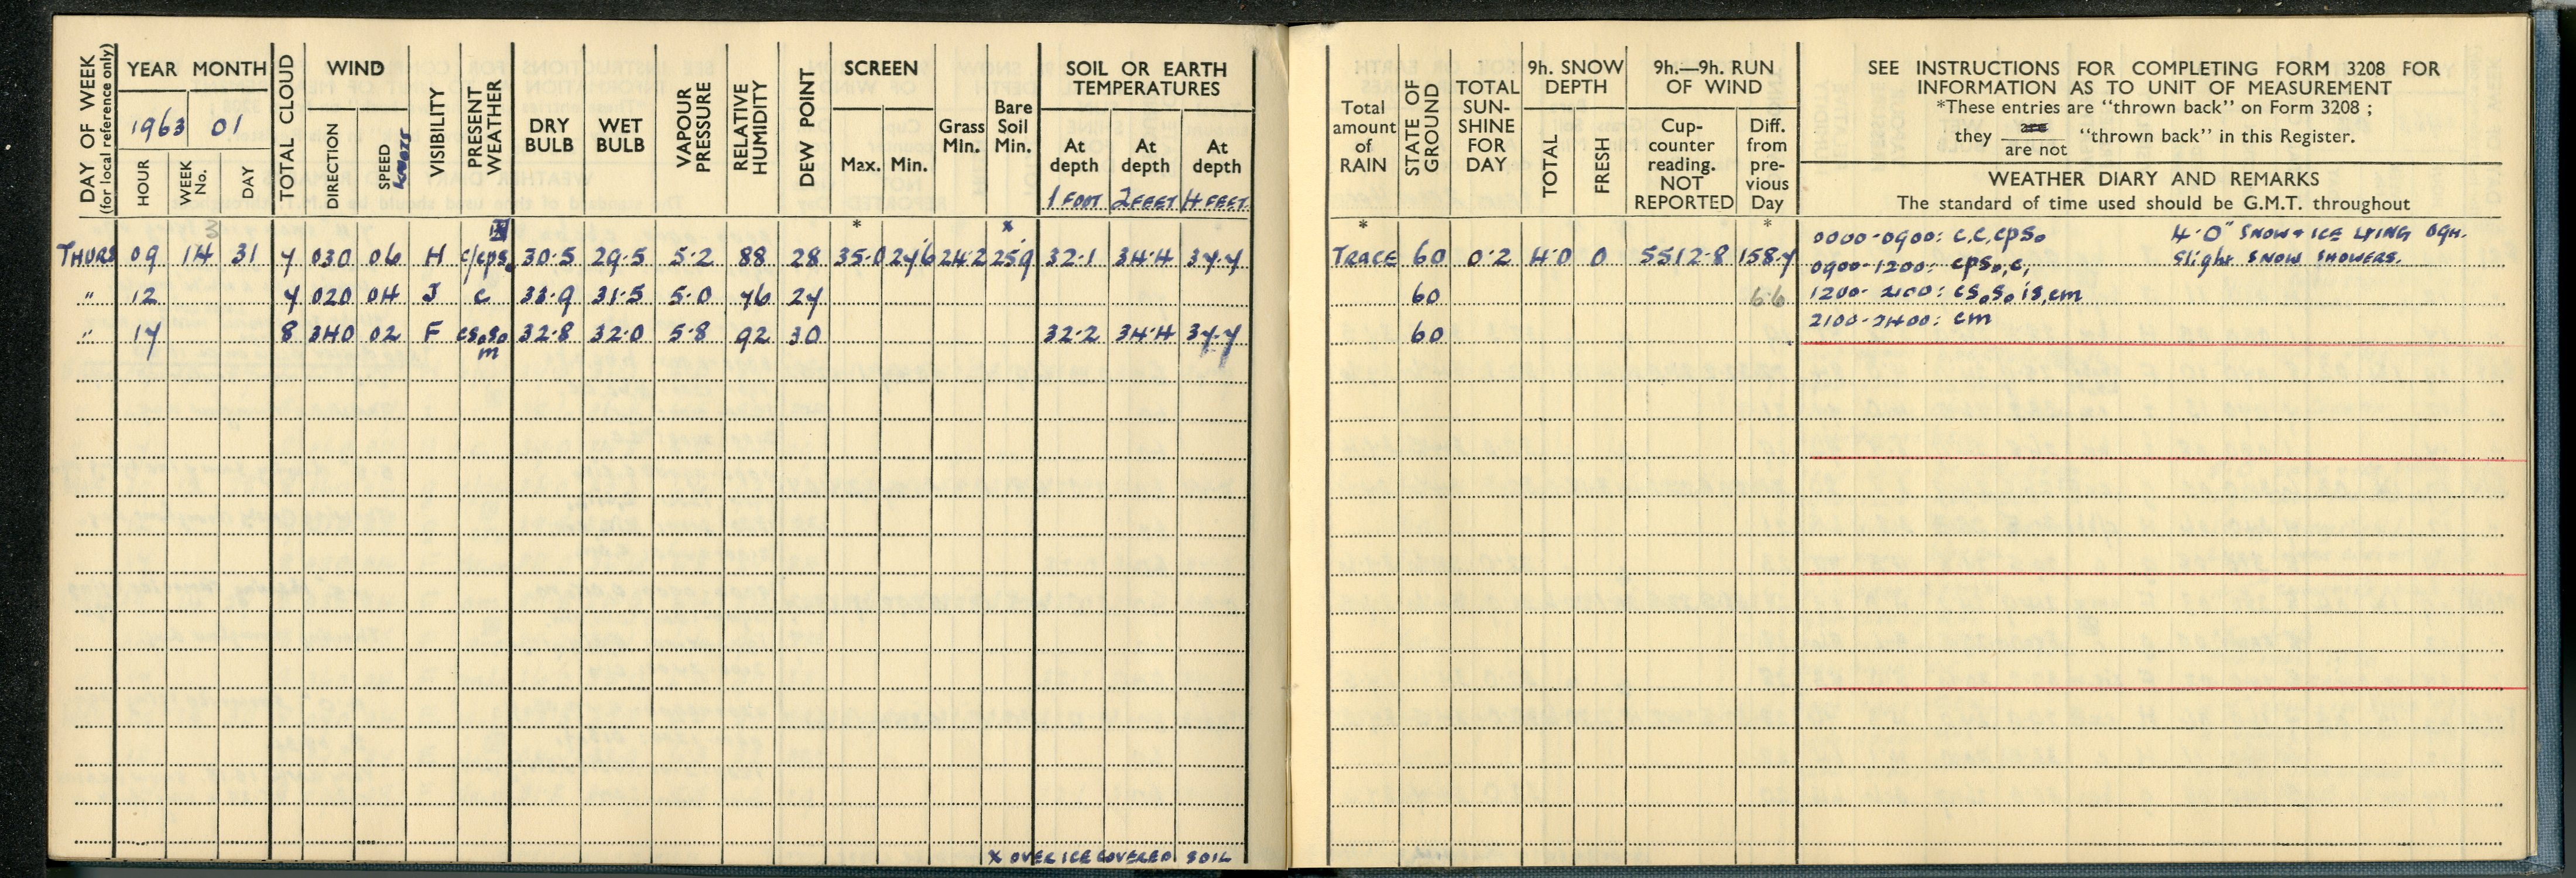 DAY OF WEEK (for local reference only)
YEAR MONTH
1963 01
HOUR WEEK No. DAY
TOTAL CLOUD
WIND
DIRECTION SPEED knots
VISIBILITY
PRESENT WEATHER
DRY BULB WET BULB
VAPOUR PRESSURE
RELATIVE HUMIDITY
DEW POINT
SCREEN
Max. Min.
Grass Min.
Bare Soil Min.
SOIL OR EARTH TEMPERATURES
At depth At depth At depth
1 FOOT 2 FEET 4 FEET
Total amount of RAIN
STATE OF GROUND
TOTAL SUN-SHINE FOR DAY
9h. SNOW DEPTH
TOTAL FRESH
9h.—9h. RUN OF WIND
Cup-counter reading. NOT REPORTED
Diff. from pre-vious Day
SEE INSTRUCTIONS FOR COMPLETING FORM 3208 FOR
INFORMATION AS TO UNIT OF MEASUREMENT
*These entries are "thrown back" on Form 3208 ;
they are / are not "thrown back" in this Register.
WEATHER DIARY AND REMARKS
The standard of time used should be G.M.T. throughout
3 * x * *
THURS 09 14 31 7 030 06 H c/cps₀ 30·5 29·5 5·2 88 28 35·0 27·6 24·2 25·9 32·1 34·4 37·7 TRACE 60 0·2 4·0 0 5512·8 158·7
" 12 7 020 04 J c 33·9 31·5 5·0 76 27 60 6·6
" 17 8 340 02 F cs₀s₀ m 32·8 32·0 5·8 92 30 32·2 34·4 37·7 60
0000-0900: c,c,cps₀ 4·0" SNOW + ICE LYING 09H.
0900-1200: cps₀,c, Slight SNOW SHOWERS.
1200-2100: cs₀s₀ is,cm
2100-2400: cm
X OVER ICE COVERED SOIL